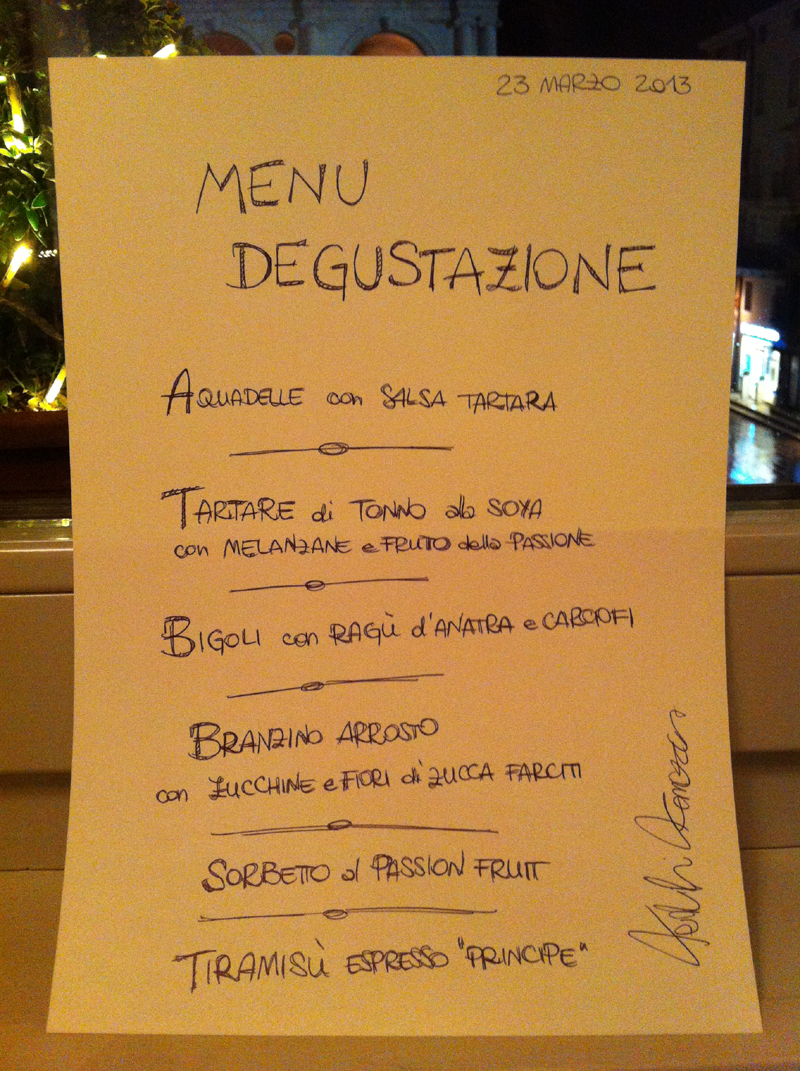 23 MARZO 2013
MENU
DEGUSTAZIONE
AQUADELLE con SALSA TARTARA
TARTARE di TONNO alla SOYA
con MELANZANE e FRUTTO della PASSIONE
BIGOLI con RAGÙ d'ANATRA e CARCIOFI
BRANZINO ARROSTO
con ZUCCHINE e FIORI di ZUCCA FARCITI
SORBETTO al PASSION FRUIT
TIRAMISÙ ESPRESSO "PRINCIPE"